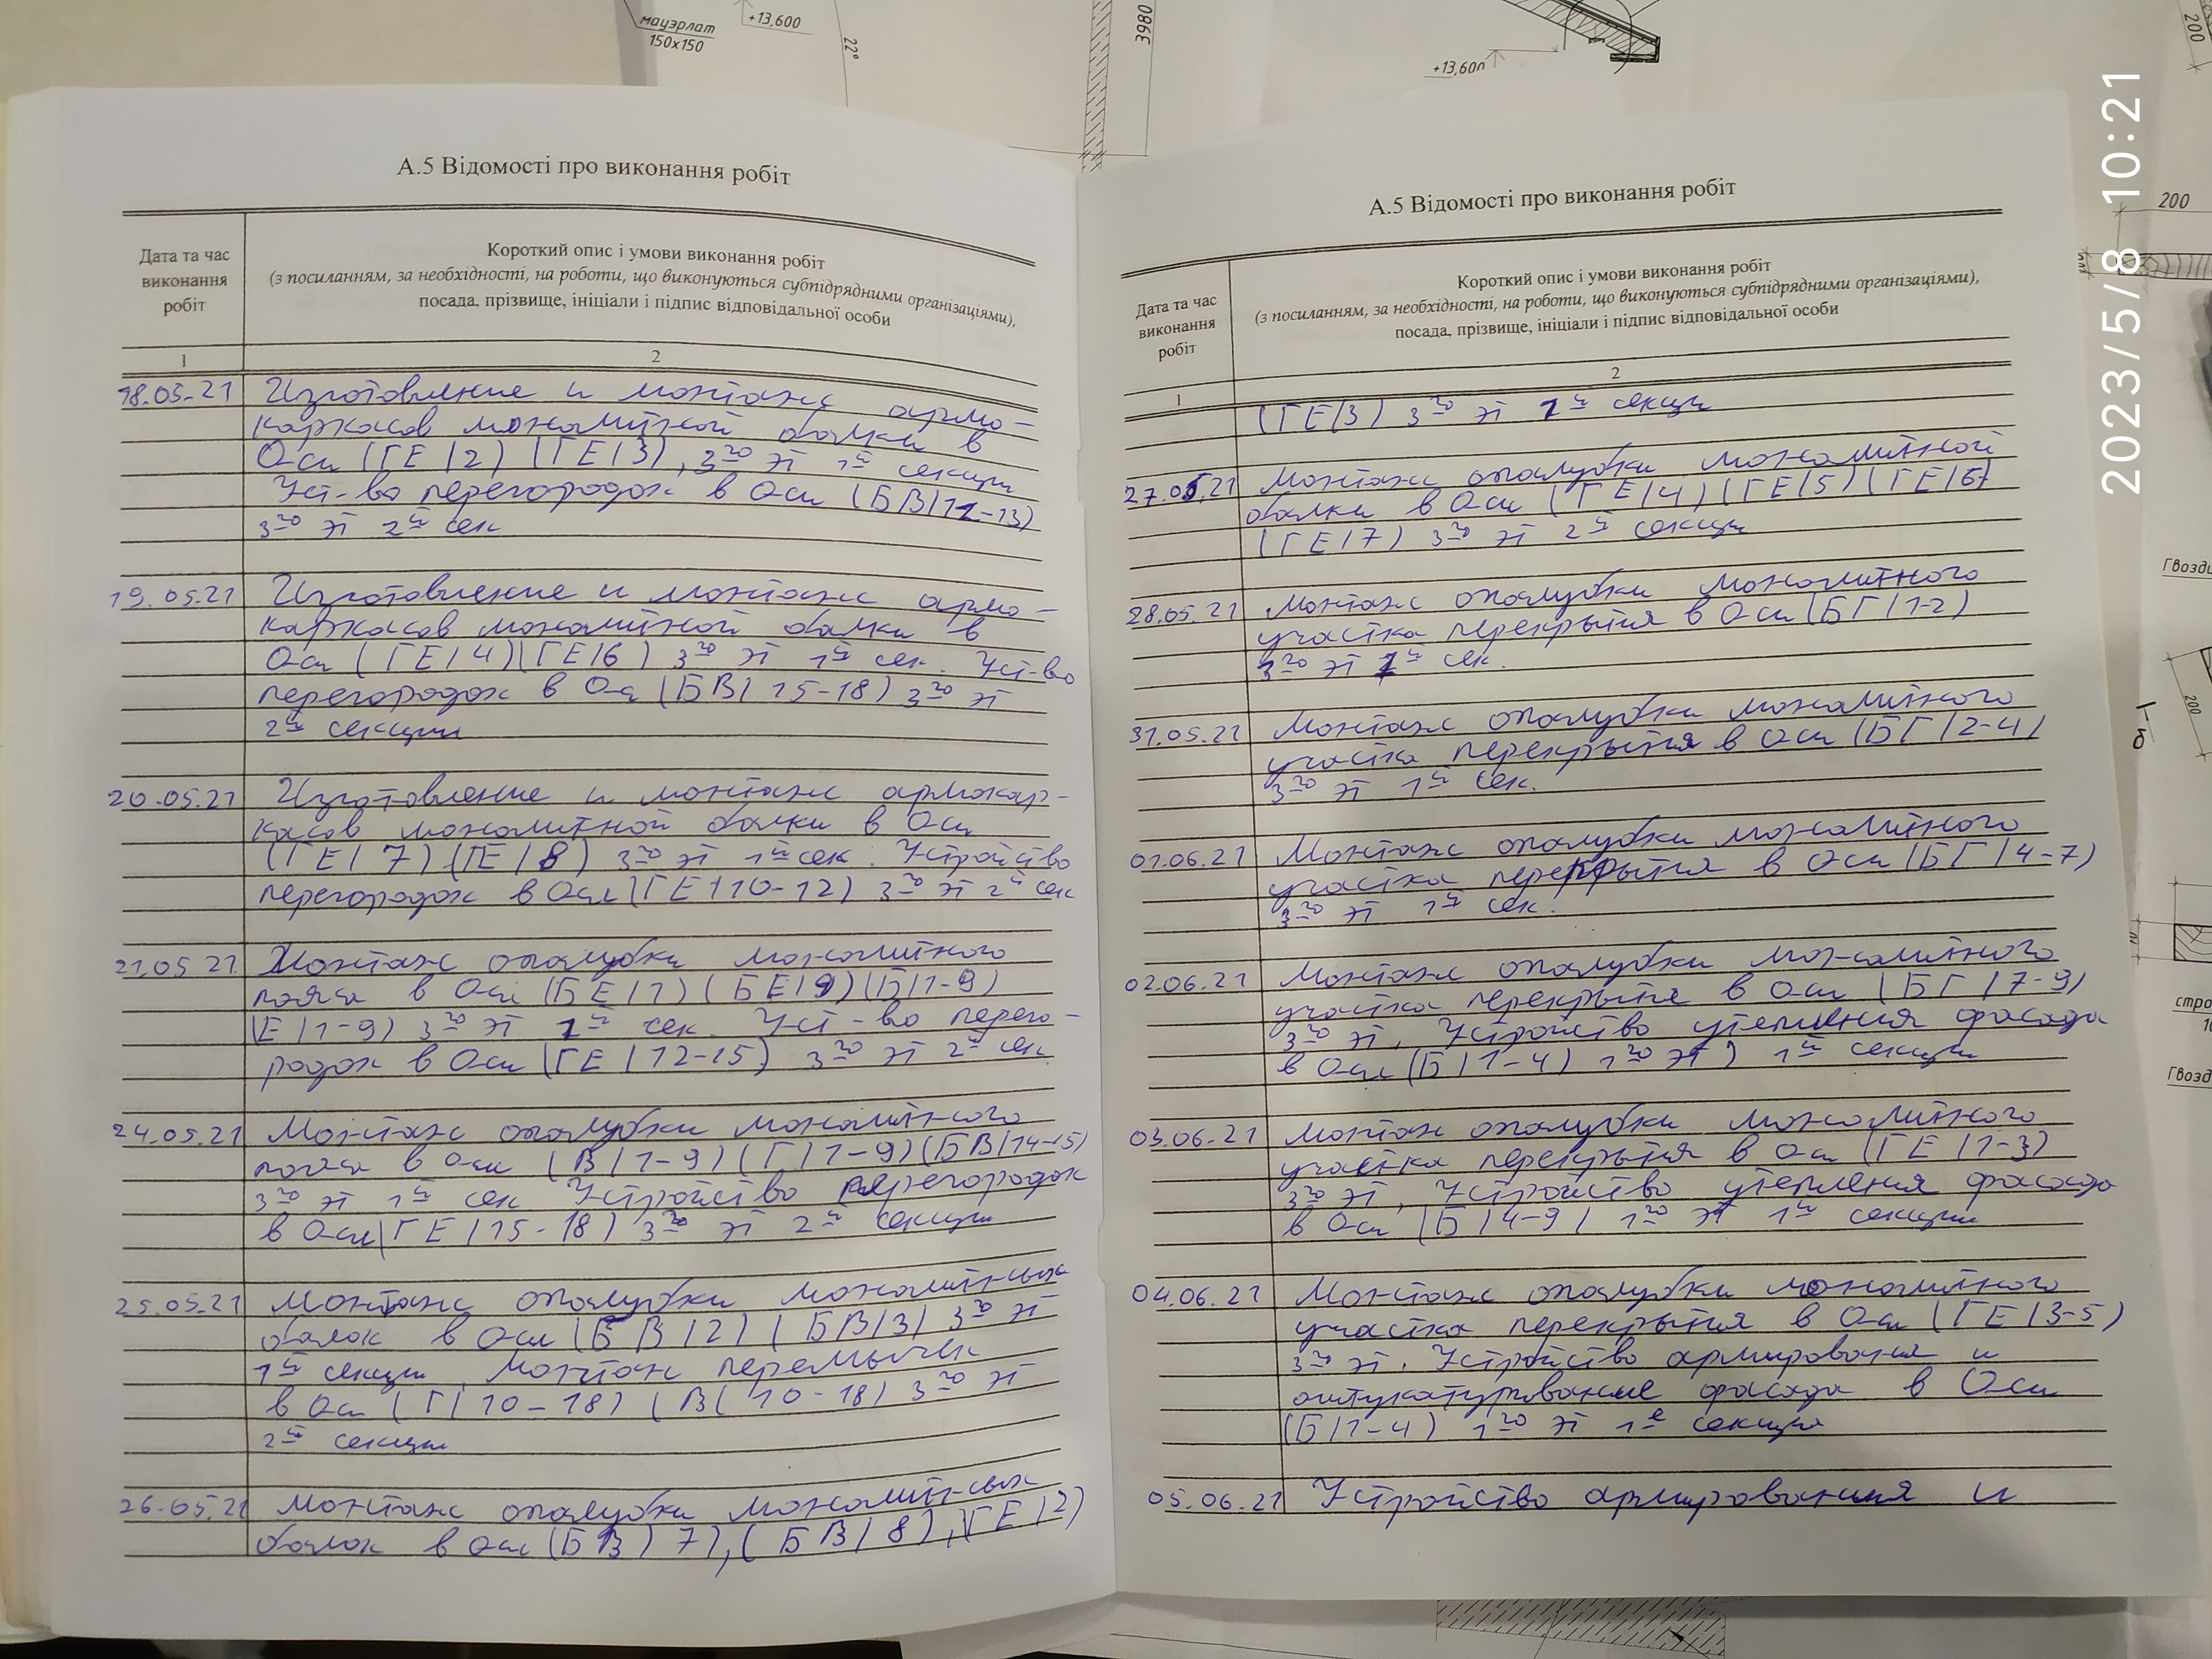 мауэрлат
150х150
+13,600
22°
3980
+13,600
200
2023/5/8 10:21
200
А.5 Відомості про виконання робіт
Дата та час
виконання
робіт
Короткий опис і умови виконання робіт
(з посиланням, за необхідності, на роботи, що виконуються субпідрядними організаціями),
посада, прізвище, ініціали і підпис відповідальної особи
1
2
18.05.21 Изготовление и монтаж армо-
каркасов монолитной балки в
Оси (ГЕ/2) (ГЕ/3), 3го эт 1й секции
Уст-во перегородок в Оси (БВ/11-13)
3го эт 2й сек
19.05.21 Изготовление и монтаж армо-
каркасов монолитной балки в
Оси (ГЕ/4)(ГЕ/6) 3го эт 1й сек. Уст-во
перегородок в Оси (БВ/15-18) 3го эт
2й секции
20.05.21 Изготовление и монтаж армокар-
касов монолитной балки в Оси
(ГЕ/7) (ГЕ/8) 3го эт 1й сек. Устройство
перегородок в Оси (ГЕ/10-12) 3го эт 2й сек
21.05.21 Монтаж опалубки монолитного
пояса в Оси (БЕ/1) (БЕ/9) (Б/1-9)
(Е/1-9) 3го эт 1й сек. Уст-во перего-
родок в Оси (ГЕ/12-15) 3го эт 2й сек
24.05.21 Монтаж опалубки монолитного
пояса в Оси (В/1-9) (Г/1-9) (БВ/14-15)
3го эт 1й сек Устройство перегородок
в Оси (ГЕ/15-18) 3го эт 2й секции
25.05.21 Монтаж опалубки монолитных
балок в Оси (БВ/2) (БВ/3) 3го эт
1й секции, Монтаж перемычек
в Оси (Г/10-18) (В/10-18) 3го эт
2й секции
26.05.21 Монтаж опалубки монолитных
балок в оси (БВ/7), (БВ/8), (ГЕ/2)
А.5 Відомості про виконання робіт
Дата та час
виконання
робіт
Короткий опис і умови виконання робіт
(з посиланням, за необхідності, на роботи, що виконуються субпідрядними організаціями),
посада, прізвище, ініціали і підпис відповідальної особи
1
2
(ГЕ/3) 3го эт 1й секци
27.05.21 Монтаж опалубки монолитной
балки в Оси (ГЕ/4) (ГЕ/5) (ГЕ/6)
(ГЕ/7) 3го эт 2й секции
28.05.21 Монтаж опалубки монолитного
участка перекрытия в Оси (БГ/1-2)
3го эт 1й сек.
31.05.21 Монтаж опалубки монолитного
участка перекрытия в Оси (БГ/2-4)
3го эт 1й сек.
01.06.21 Монтаж опалубки монолитного
участка перекрытия в Оси (БГ/4-7)
3го эт 1й сек.
02.06.21 Монтаж опалубки монолитного
участка перекрытия в Оси (БГ/7-9)
3го эт, Устройство утепления фасада
в Оси (Б/1-4) 1го эт) 1й секции
03.06.21 Монтаж опалубки монолитного
участка перекрытия в Оси (ГЕ/1-3)
3го эт, Устройство утепления фасада
в Оси (Б/4-9) 1го эт 1й секции
04.06.21 Монтаж опалубки монолитного
участка перекрытия в Оси (ГЕ/3-5)
3го эт. Устройство армирования и
оштукатуривание фасада в Оси
(Б/1-4) 1го эт 1й секции
05.06.21 Устройство армирования и
200
Гвозд